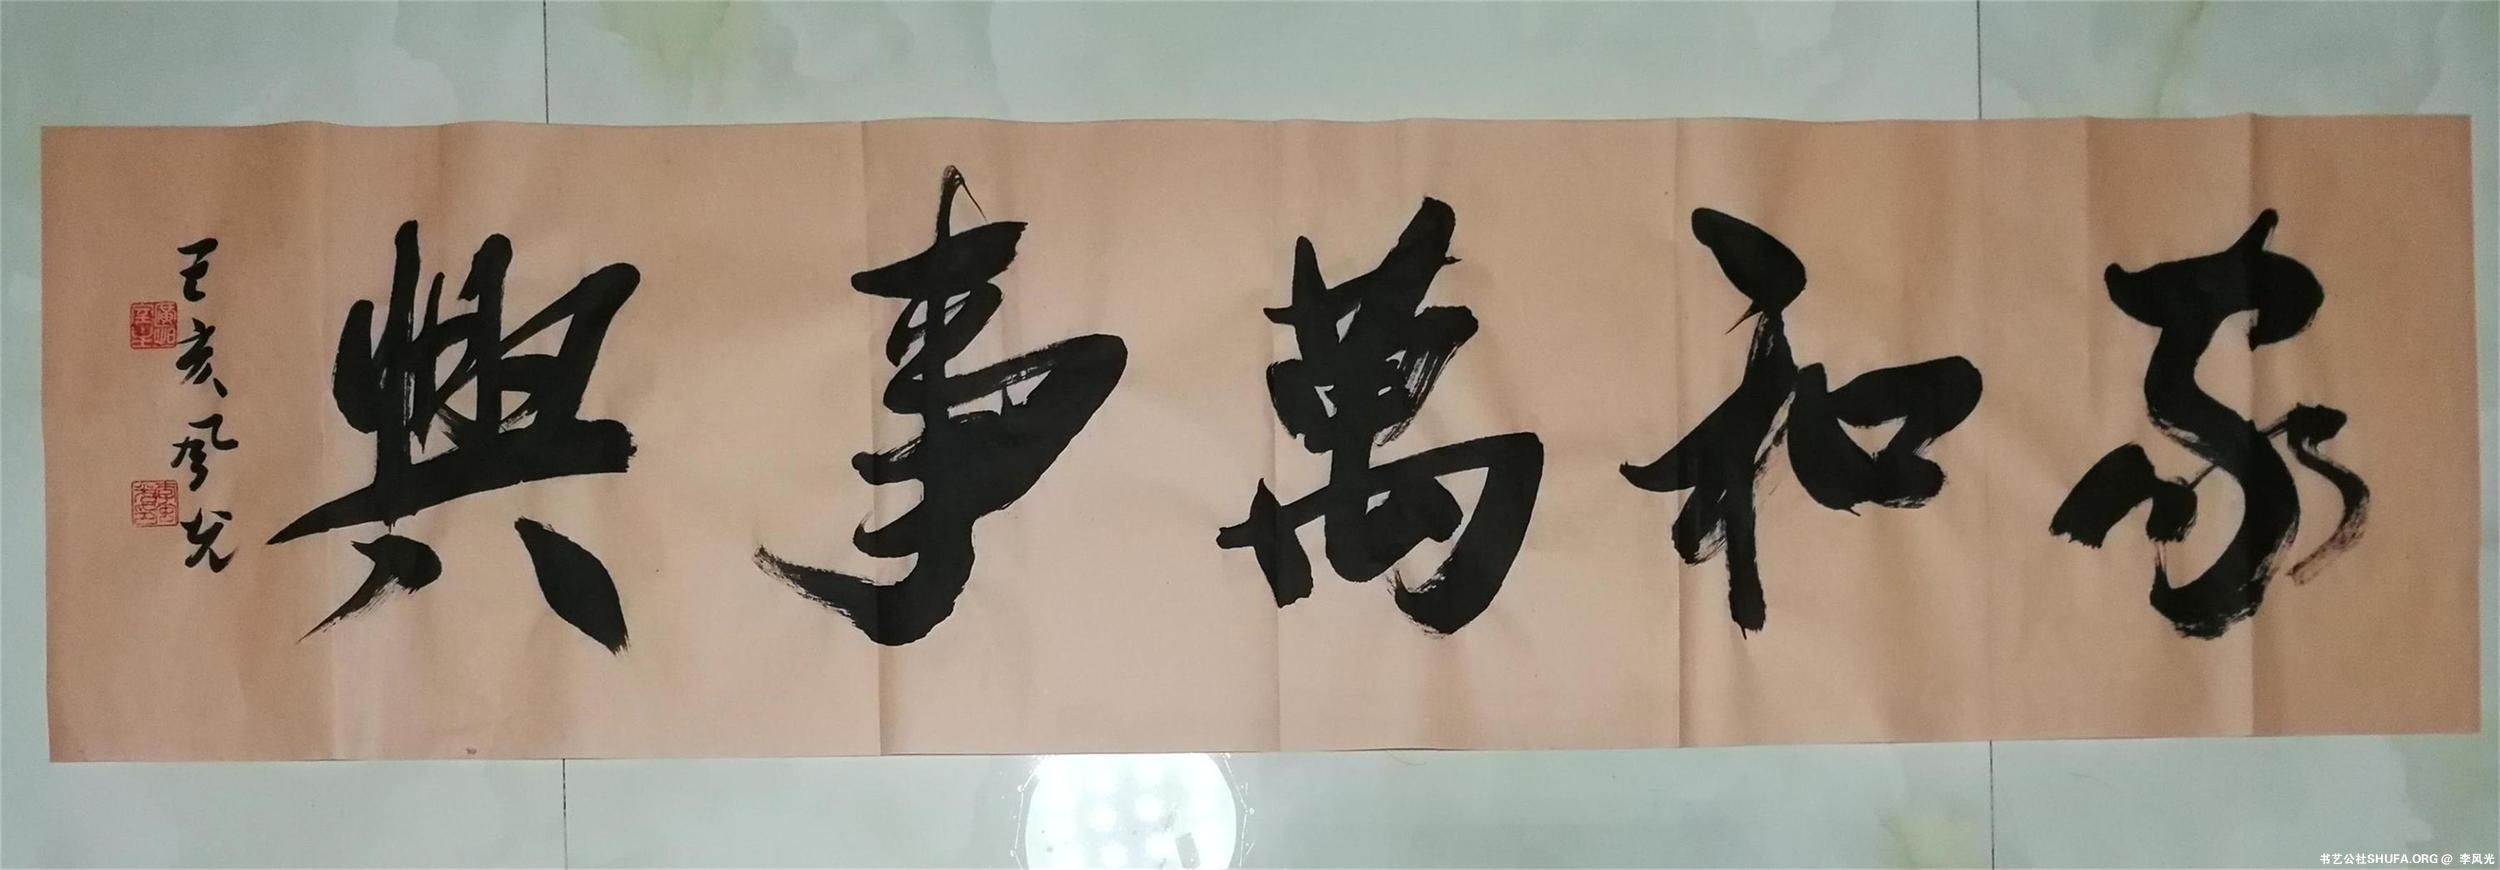 家和萬事興
己亥風光
书艺公社SHUFA.ORG @ 李风光